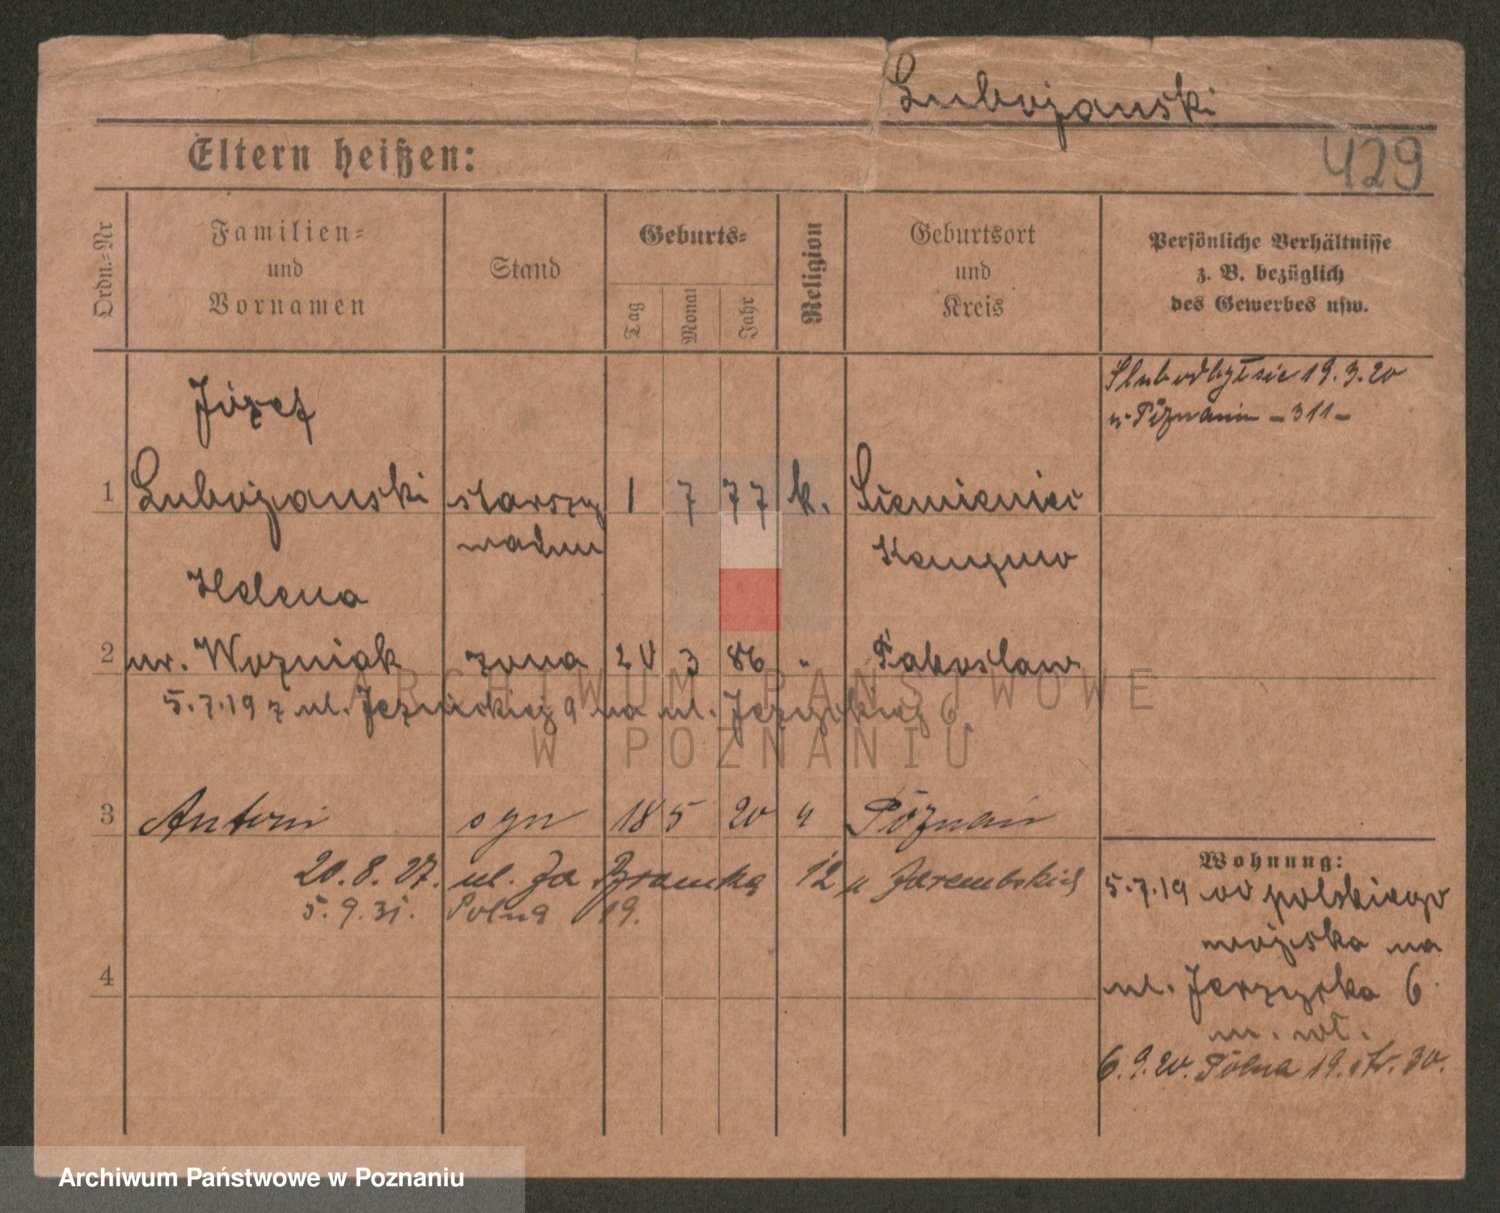 Lubojanski
Eltern heißen:
429
Ordn.-Nr
Familien-
und
Vornamen
Stand
Geburts-
Tag
Monat
Jahr
Religion
Geburtsort
und
Kreis
Persönliche Verhältnisse
z. B. bezüglich
des Gewerbes usw.
Ślub odbył się 19.3.20
w Poznaniu - 311 -
Józef
1 Lubojanski starszy 1 7 77 k. Siemienice
Kempno
Helena
2 ur. Wozniak żona 20 3 86 "
5.7.19 z ul. 9 na ul. 6.
3 Antoni syn 18 5 20 " Poznań
20.8.27. ul. Za Bramką 12 u Zarembskich
5.9.31. Polna 19.
4
Wohnung:
5.7.19 od polskiego
wojska na
ul. 6
6.9.20. Polna 19. 30.
ARCHIWUM PAŃSTWOWE
W POZNANIU
Archiwum Państwowe w Poznaniu